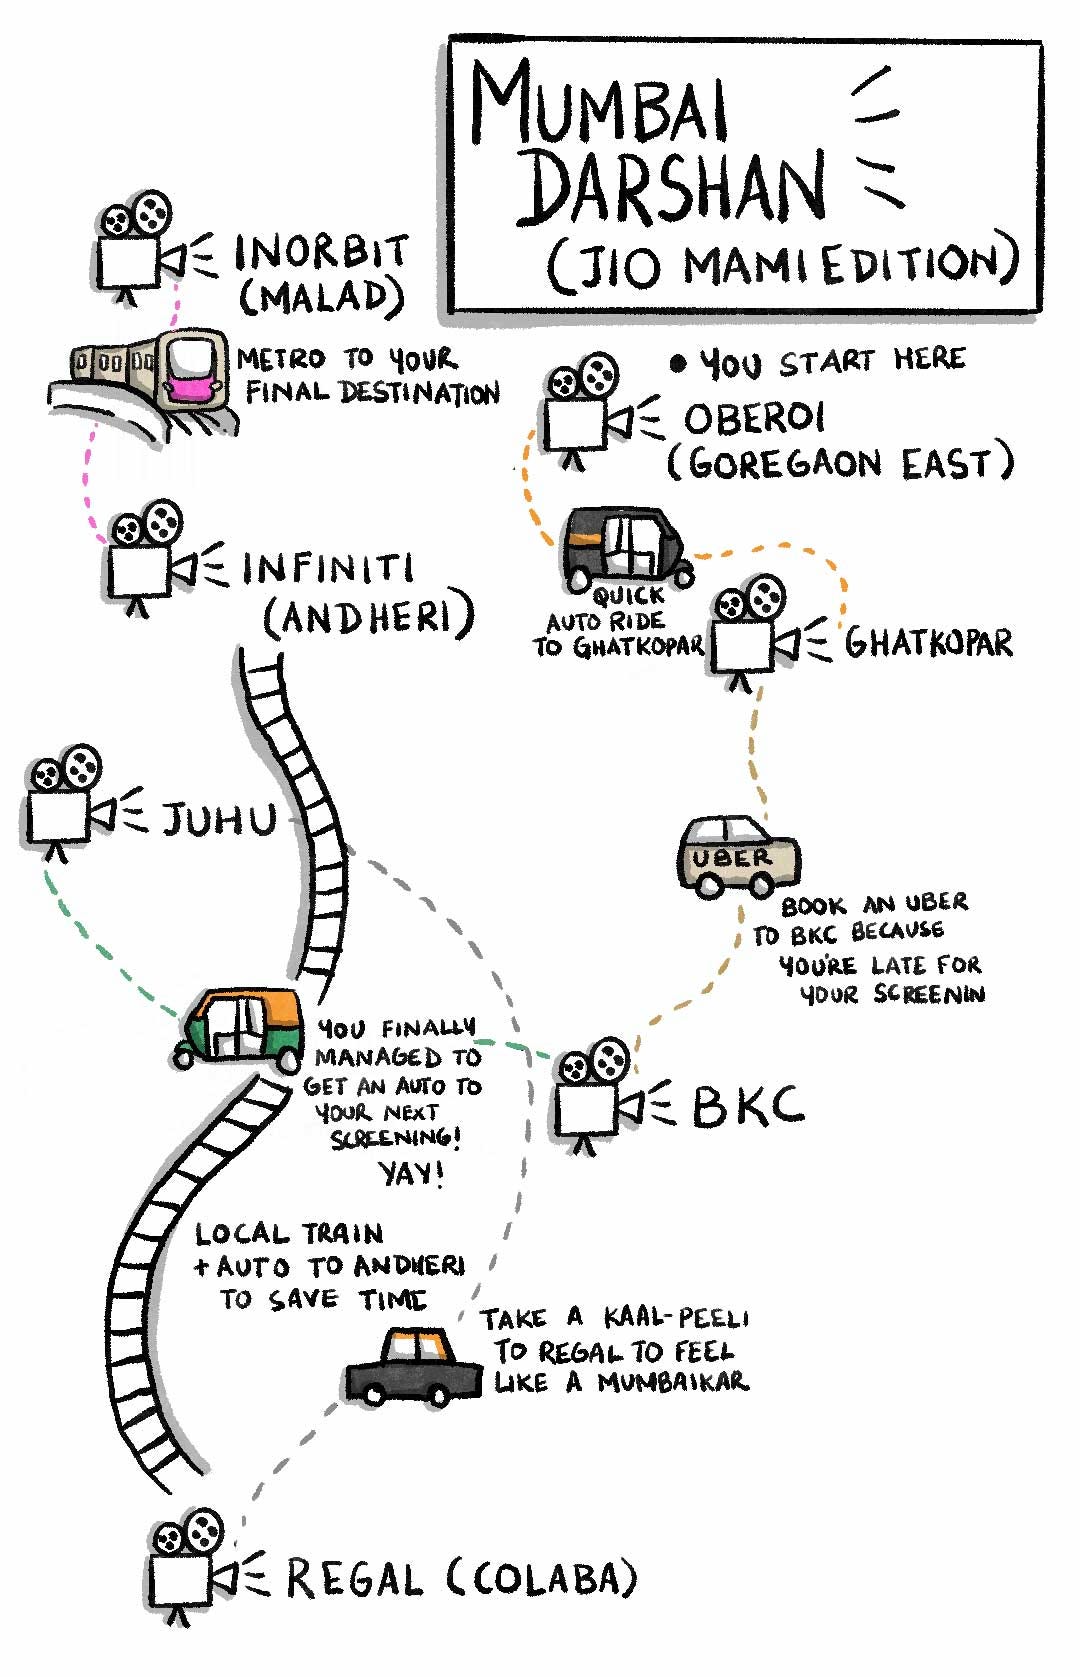 MUMBAI
DARSHAN
(JIO MAMI EDITION)
INORBIT
(MALAD)
METRO TO YOUR
FINAL DESTINATION
• YOU START HERE
OBEROI
(GOREGAON EAST)
INFINITI
(ANDHERI)
QUICK
AUTO RIDE
TO GHATKOPAR
GHATKOPAR
JUHU
UBER
BOOK AN UBER
TO BKC BECAUSE
YOU'RE LATE FOR
YOUR SCREENIN
YOU FINALLY
MANAGED TO
GET AN AUTO TO
YOUR NEXT
SCREENING!
YAY!
BKC
LOCAL TRAIN
+ AUTO TO ANDHERI
TO SAVE TIME
TAKE A KAAL-PEELI
TO REGAL TO FEEL
LIKE A MUMBAIKAR
REGAL (COLABA)